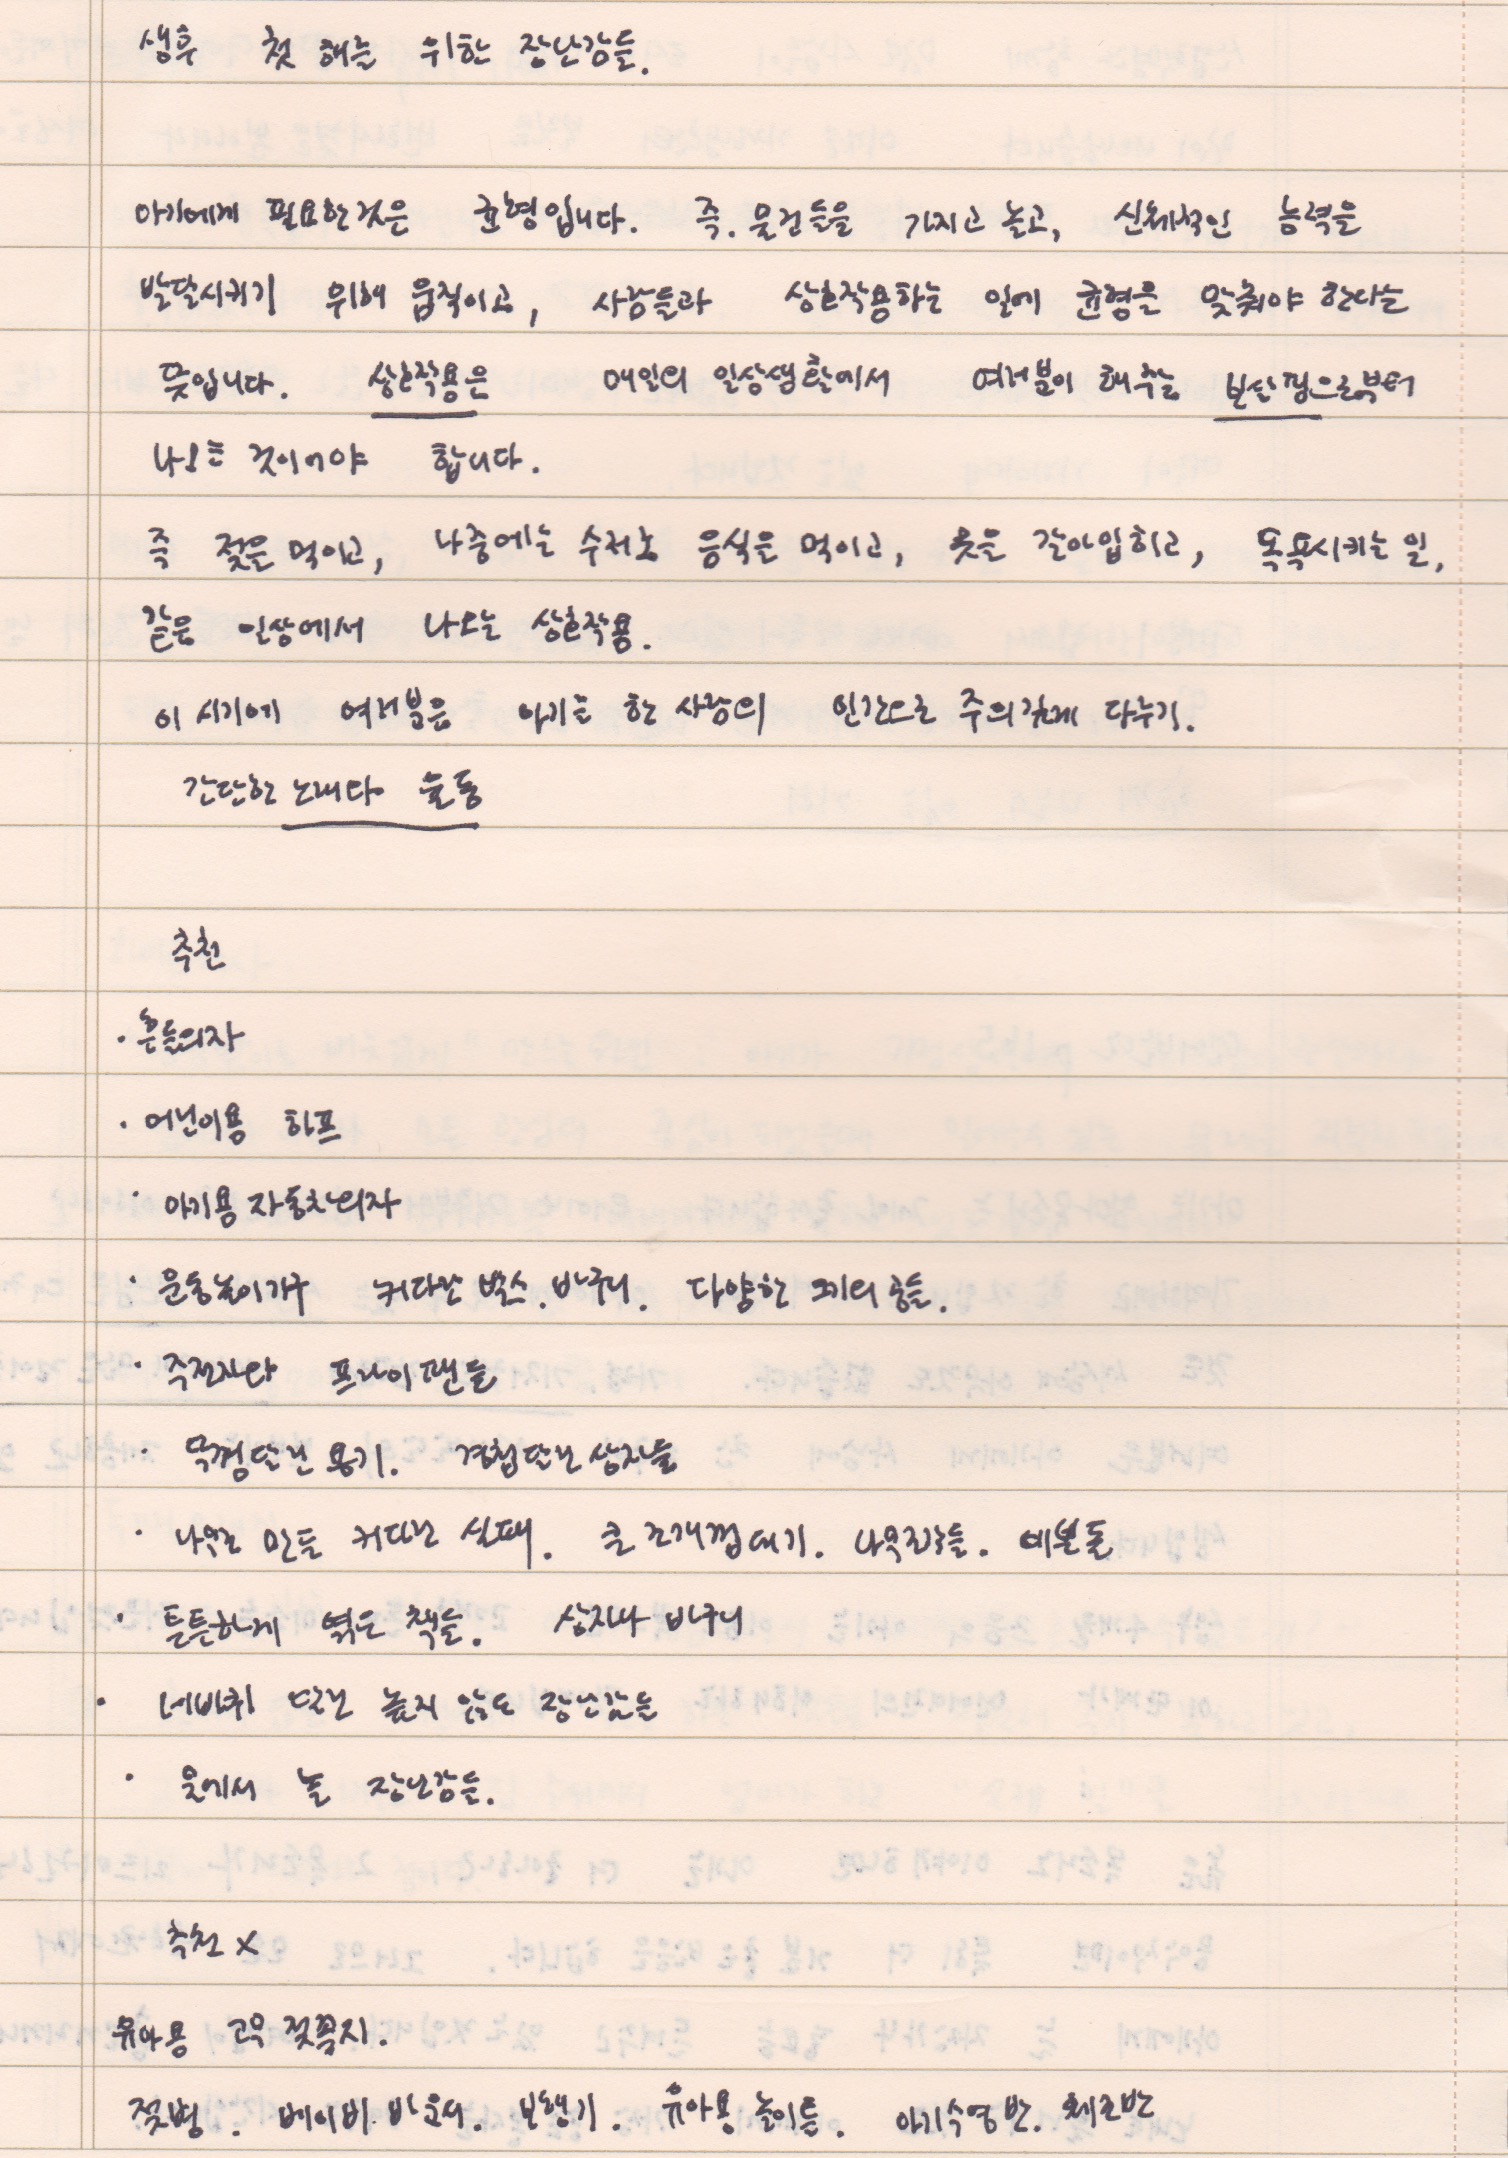 생후 첫 해를 위한 장난감들.
아기에게 필요한것은 균형입니다. 즉. 물건들을 가지고 놀고, 신체적인 능력을
발달시키기 위해 움직이고, 사람들과 상호작용하는 일에 균형을 맞춰야 한다는
뜻입니다. 상호작용은 매일의 일상생활에서 여러분이 해주는 보살핌으로부터
나오는 것이어야 합니다.
즉 젖을 먹이고, 나중에는 수저로 음식을 먹이고, 옷을 갈아입히고, 목욕시키는 일,
같은 일상에서 나오는 상호작용.
이 시기에 여러분은 아기를 한 사람의 인간으로 주의깊게 다루기.
간단한 노래다 율동
추천
· 흔들의자
· 어린이용 하프
· 아기용 자동차의자
· 운동놀이기구 커다란 박스. 바구니. 다양한 크기의 공들.
· 주전자와 프라이팬들
· 뚜껑달린 용기. 경첩달린 상자들
· 나무로 만든 커다란 실패. 큰 조개껍데기. 나무조각들. 예쁜돌
· 튼튼하게 엮은 책들. 상자나 바구니
· 네바퀴 달린 높지 않은 장난감들
· 물에서 놀 장난감들.
추천 x
유아용 고무 젖꼭지.
젖병. 베이비 바운서. 보행기. 유아용 놀이틀. 아기수영반. 체조반